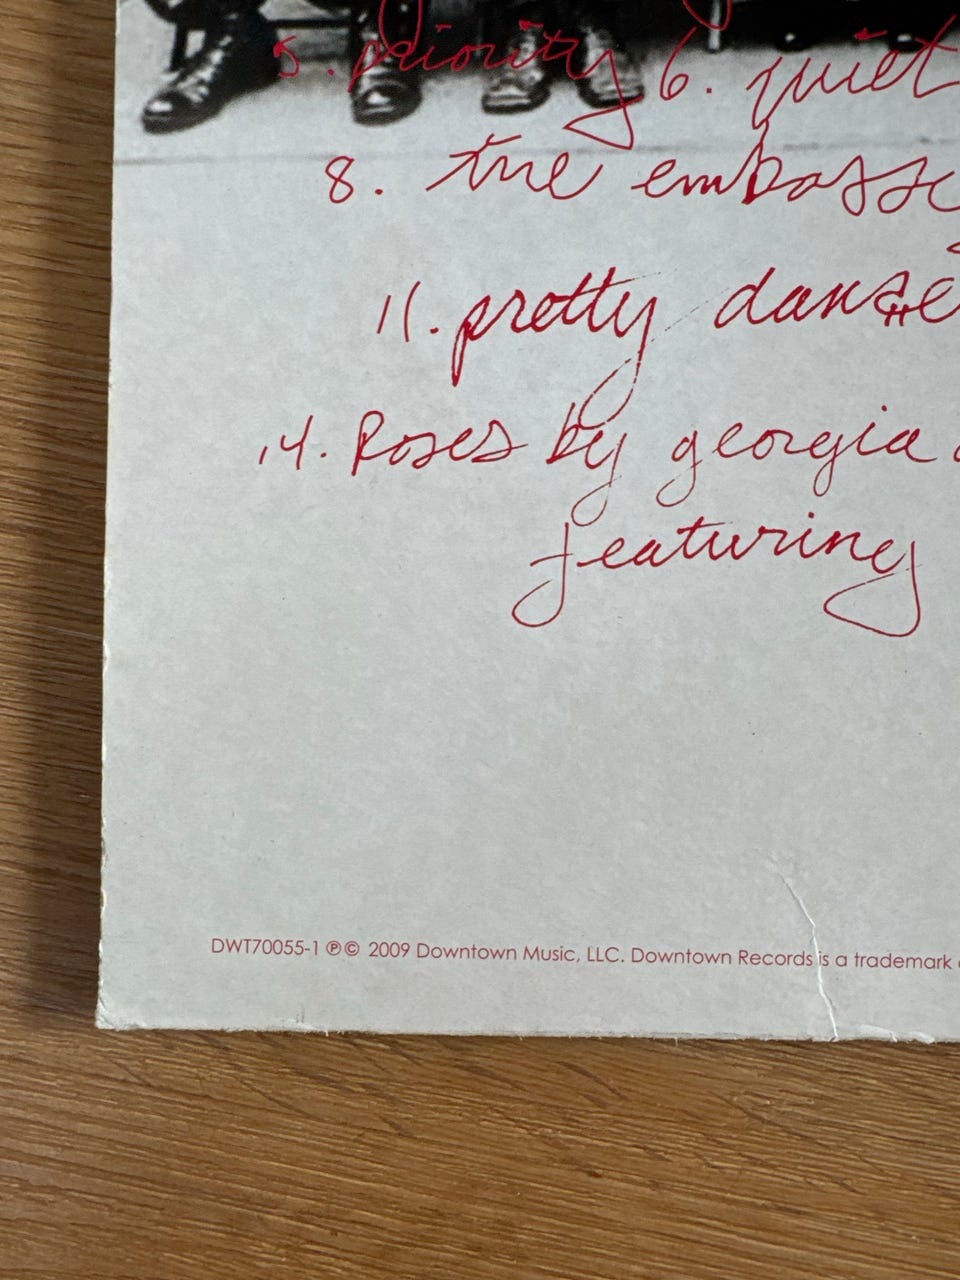 5. priority 6. quiet
8. the embassy
11. pretty danse
14. Roses by georgia
featuring
DWT70055-1 ℗© 2009 Downtown Music, LLC. Downtown Records is a trademark